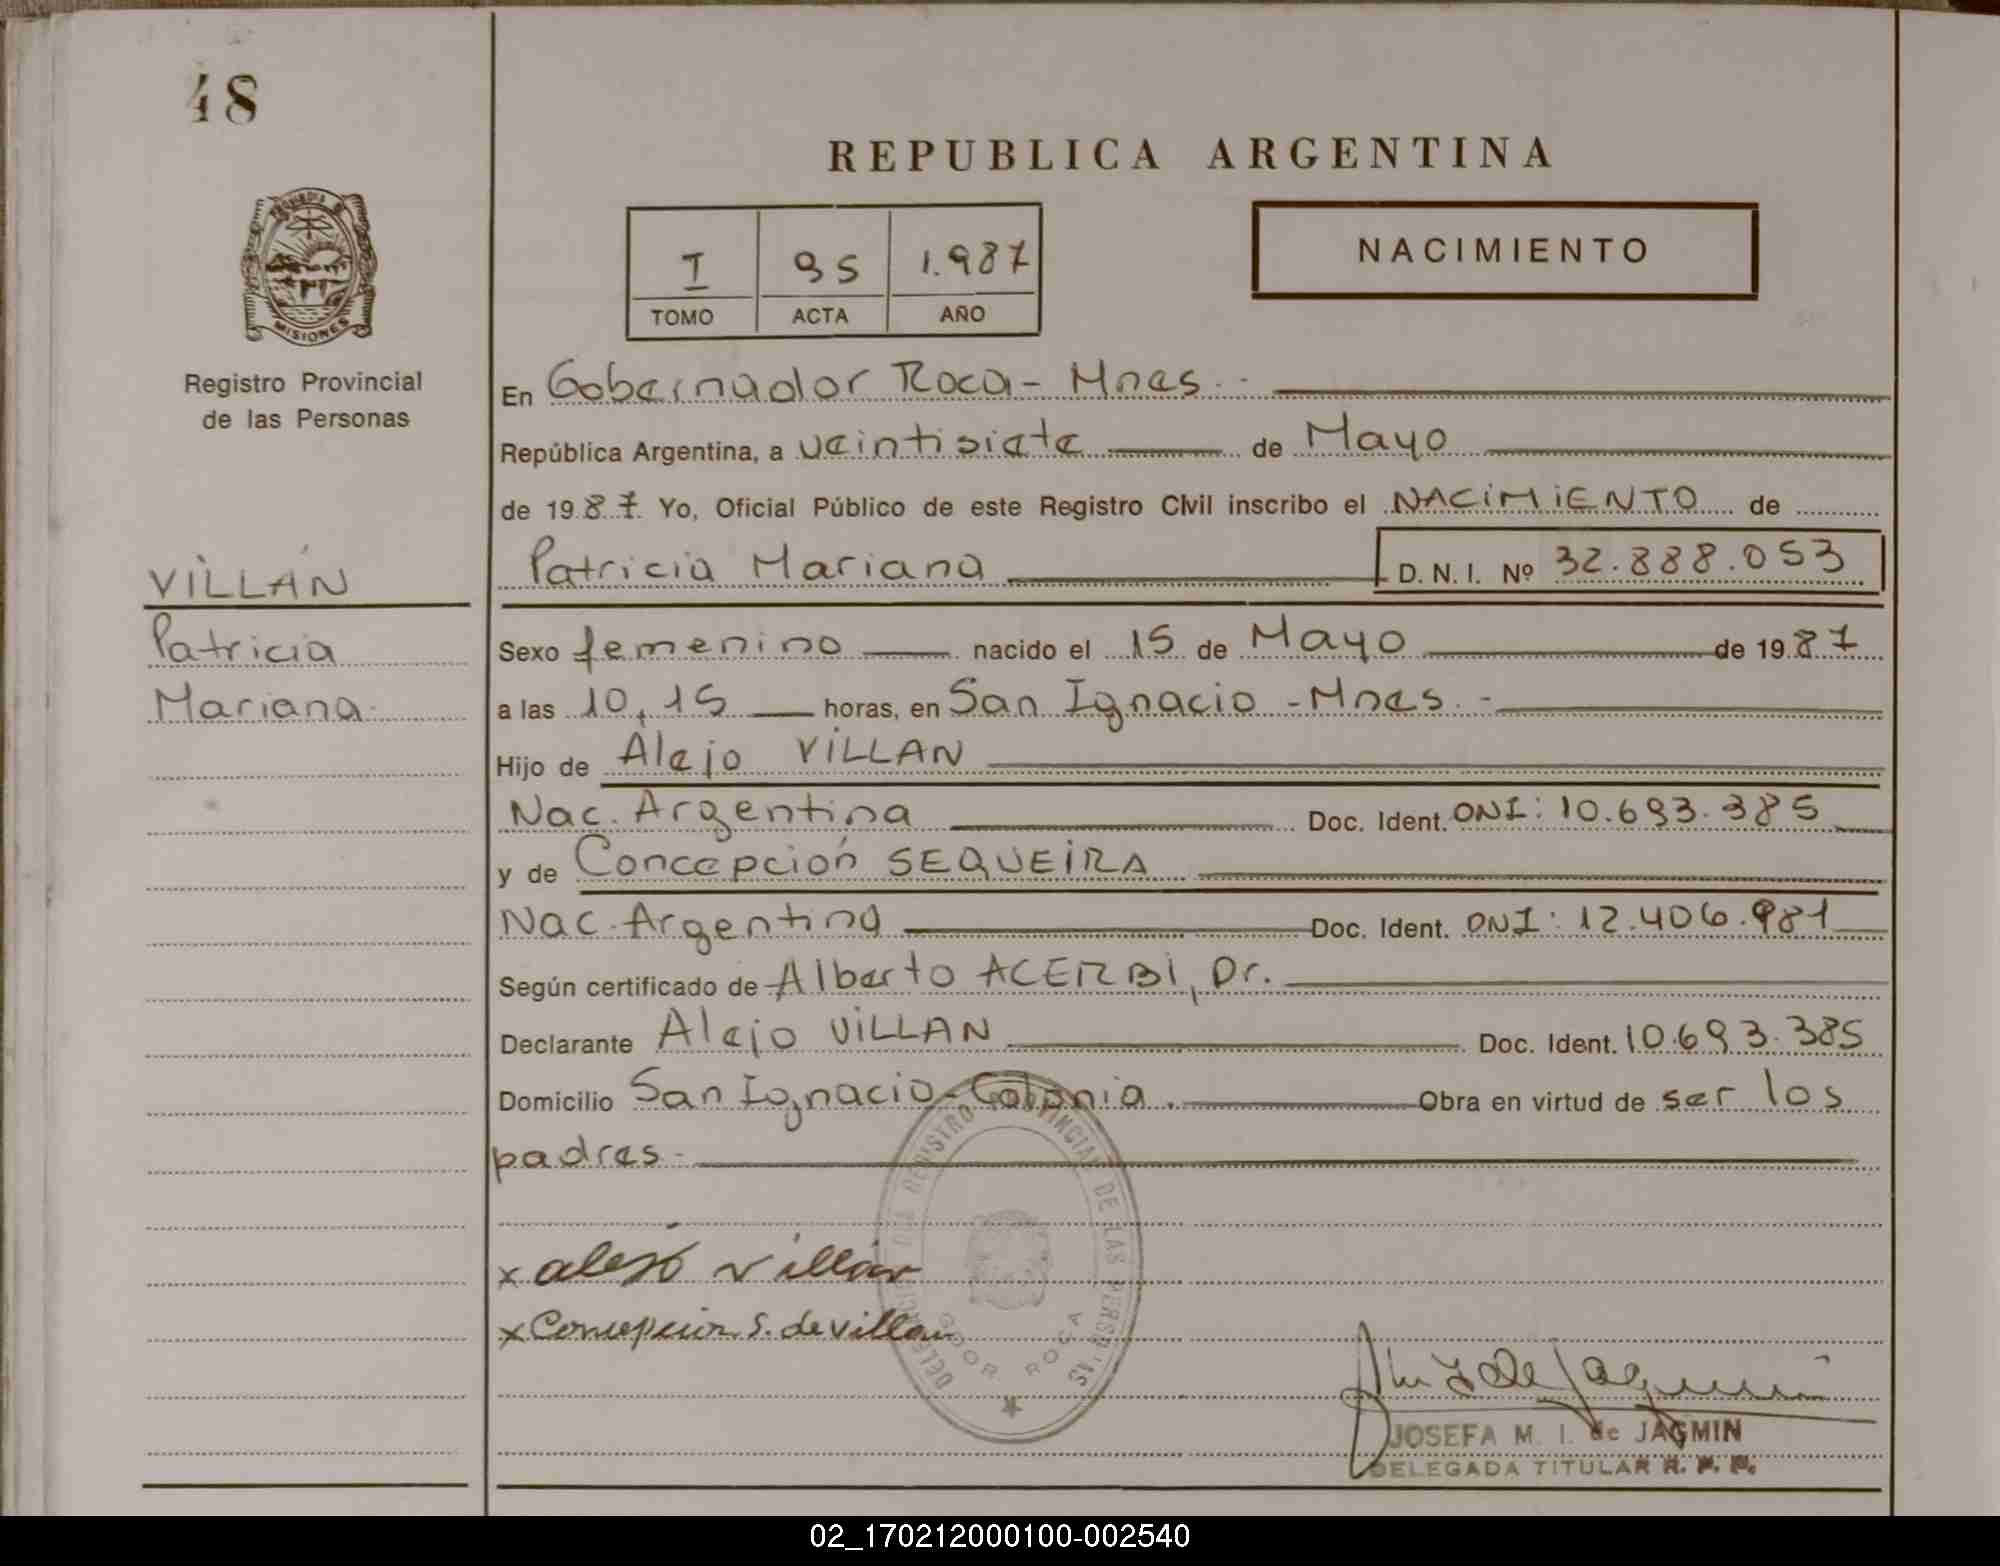 48
REPUBLICA ARGENTINA
I 95 1.987
TOMO ACTA AÑO
NACIMIENTO
MISIONES
Registro Provincial
de las Personas
VILLÁN
Patricia
Mariana.
En Gobernador Roca - Mnes. -
República Argentina, a veintisiete de Mayo
de 1987 Yo, Oficial Público de este Registro Civil inscribo el NACIMIENTO de
Patricia Mariana D. N. I. Nº 32.888.053
Sexo femenino nacido el 15 de Mayo de 1987
a las 10,15 horas, en San Ignacio - Mnes. -
Hijo de Alejo VILLAN
Nac. Argentina Doc. Ident. DNI: 10.693.385
y de Concepción SEQUEIRA
Nac. Argentina Doc. Ident. DNI: 12.406.981
Según certificado de Alberto ACERBI, Dr.
Declarante Alejo VILLAN Doc. Ident. 10.693.385
Domicilio San Ignacio - Colonia. Obra en virtud de ser los
padres -
x alejo villán
x Concepcion S. de villan
DELEGACION REGISTRO PROVINCIAL DE LAS PERSONAS
GDOR ROCA
JOSEFA M. I. de JAGMIN
DELEGADA TITULAR R. P. P.
02_170212000100-002540